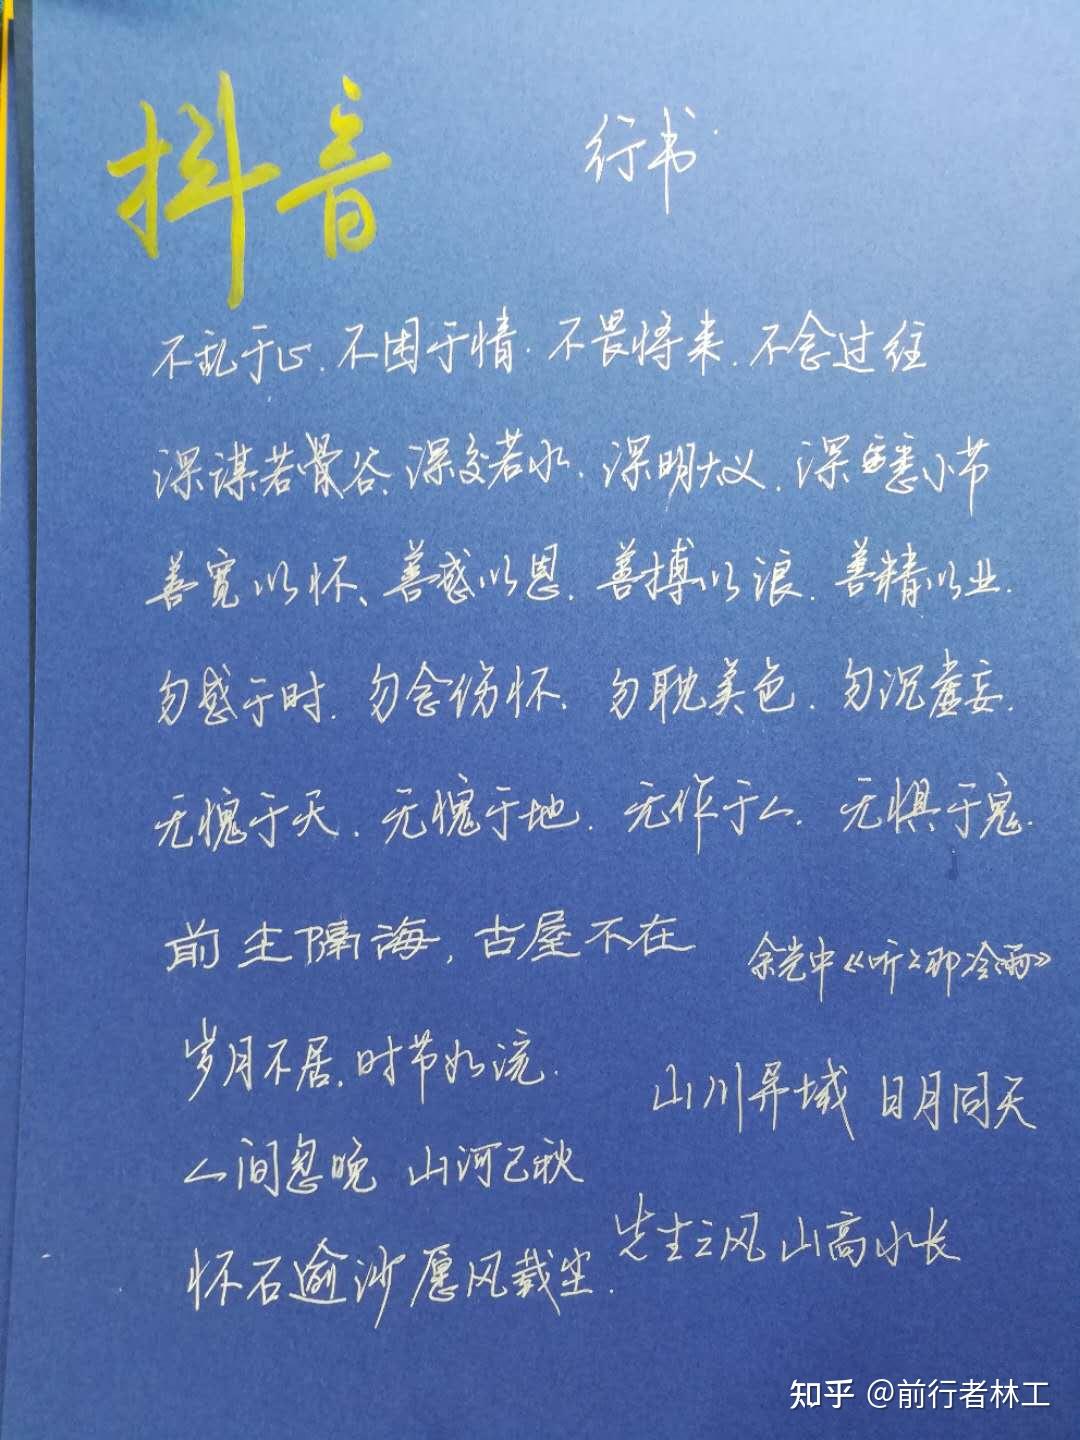 抖音 行书
不乱于心.不困于情.不畏将来.不念过往
深谋若谷、深交若水.深明大义.深悉小节
善宽以怀、善感以恩.善搏以浪.善精以业.
勿感于时.勿念伤怀、勿耽美色.勿沉虚妄.
无愧于天.无愧于地.无作于人.无惧于鬼.
前生隔海,古屋不在
余光中《听听那冷雨》
岁月不居.时节如流.
山川异域 日月同天
人间忽晚 山河已秋
先生之风 山高水长
怀石逾沙 愿风载尘.
知乎 @前行者林工